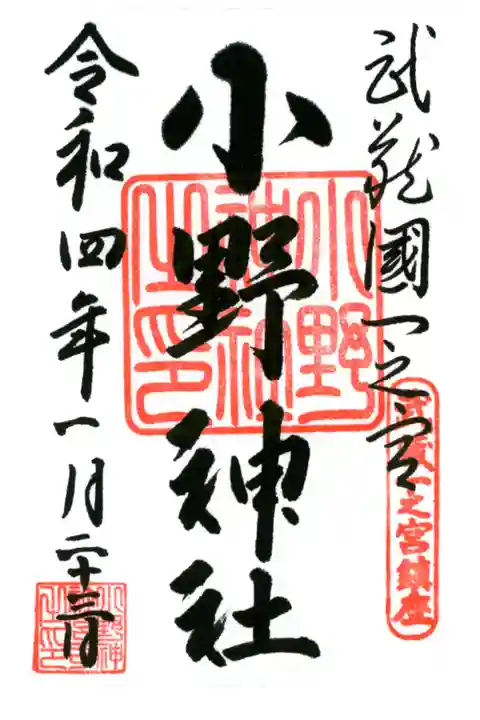 武蔵國一之宮
武蔵一之宮鎮座
小野神社
小野
神社
之印
令和四年一月二十三日